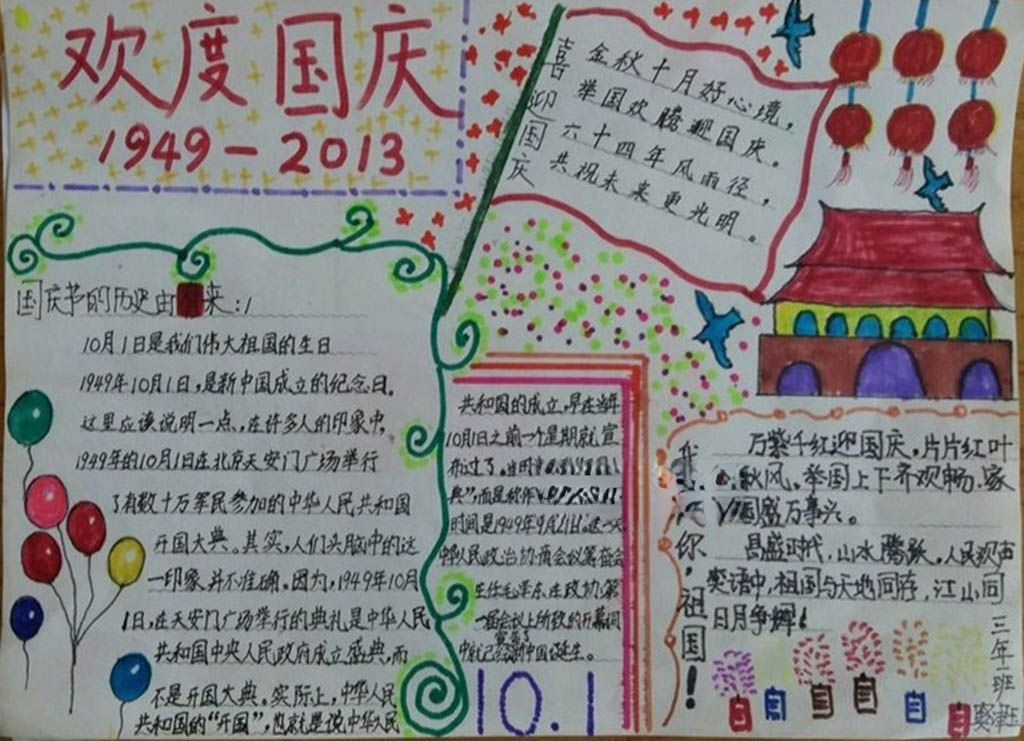 欢度国庆
1949-2013
喜迎国庆
金秋十月好心境，
举国欢腾迎国庆。
六十四年风雨径，
共祝未来更光明。
国庆节的历史由来：
10月1日是我们伟大祖国的生日
1949年10月1日，是新中国成立的纪念日。
这里应该说明一点，在许多人的印象中，
1949年的10月1日在北京天安门广场举行
了有数十万军民参加的中华人民共和国
开国大典。其实，人们头脑中的这
一印象并不准确。因为，1949年10月
1日，在天安门广场举行的典礼是中华人民
共和国中央人民政府成立盛典，而
不是开国大典。实际上，中华人民
共和国的“开国”，也就是说中华人民
共和国的成立，早在当年
10月1日之前一个星期就宣
布过了。当时
典”，而是称作
时间是1949年9月21日。这一天
中华人民政治协商会议筹备会
主任毛泽东在政协第
一届会议上所致的开幕词
中就已宣告了新中国诞生。
10.1
我 你，祖国！
万紫千红迎国庆，片片红叶
秋风。举国上下齐欢畅，家
国盛万事兴。
昌盛时代，山水腾跃，人民欢声
笑语中，祖国与天地同存，江山同
日月争辉！
三年一班